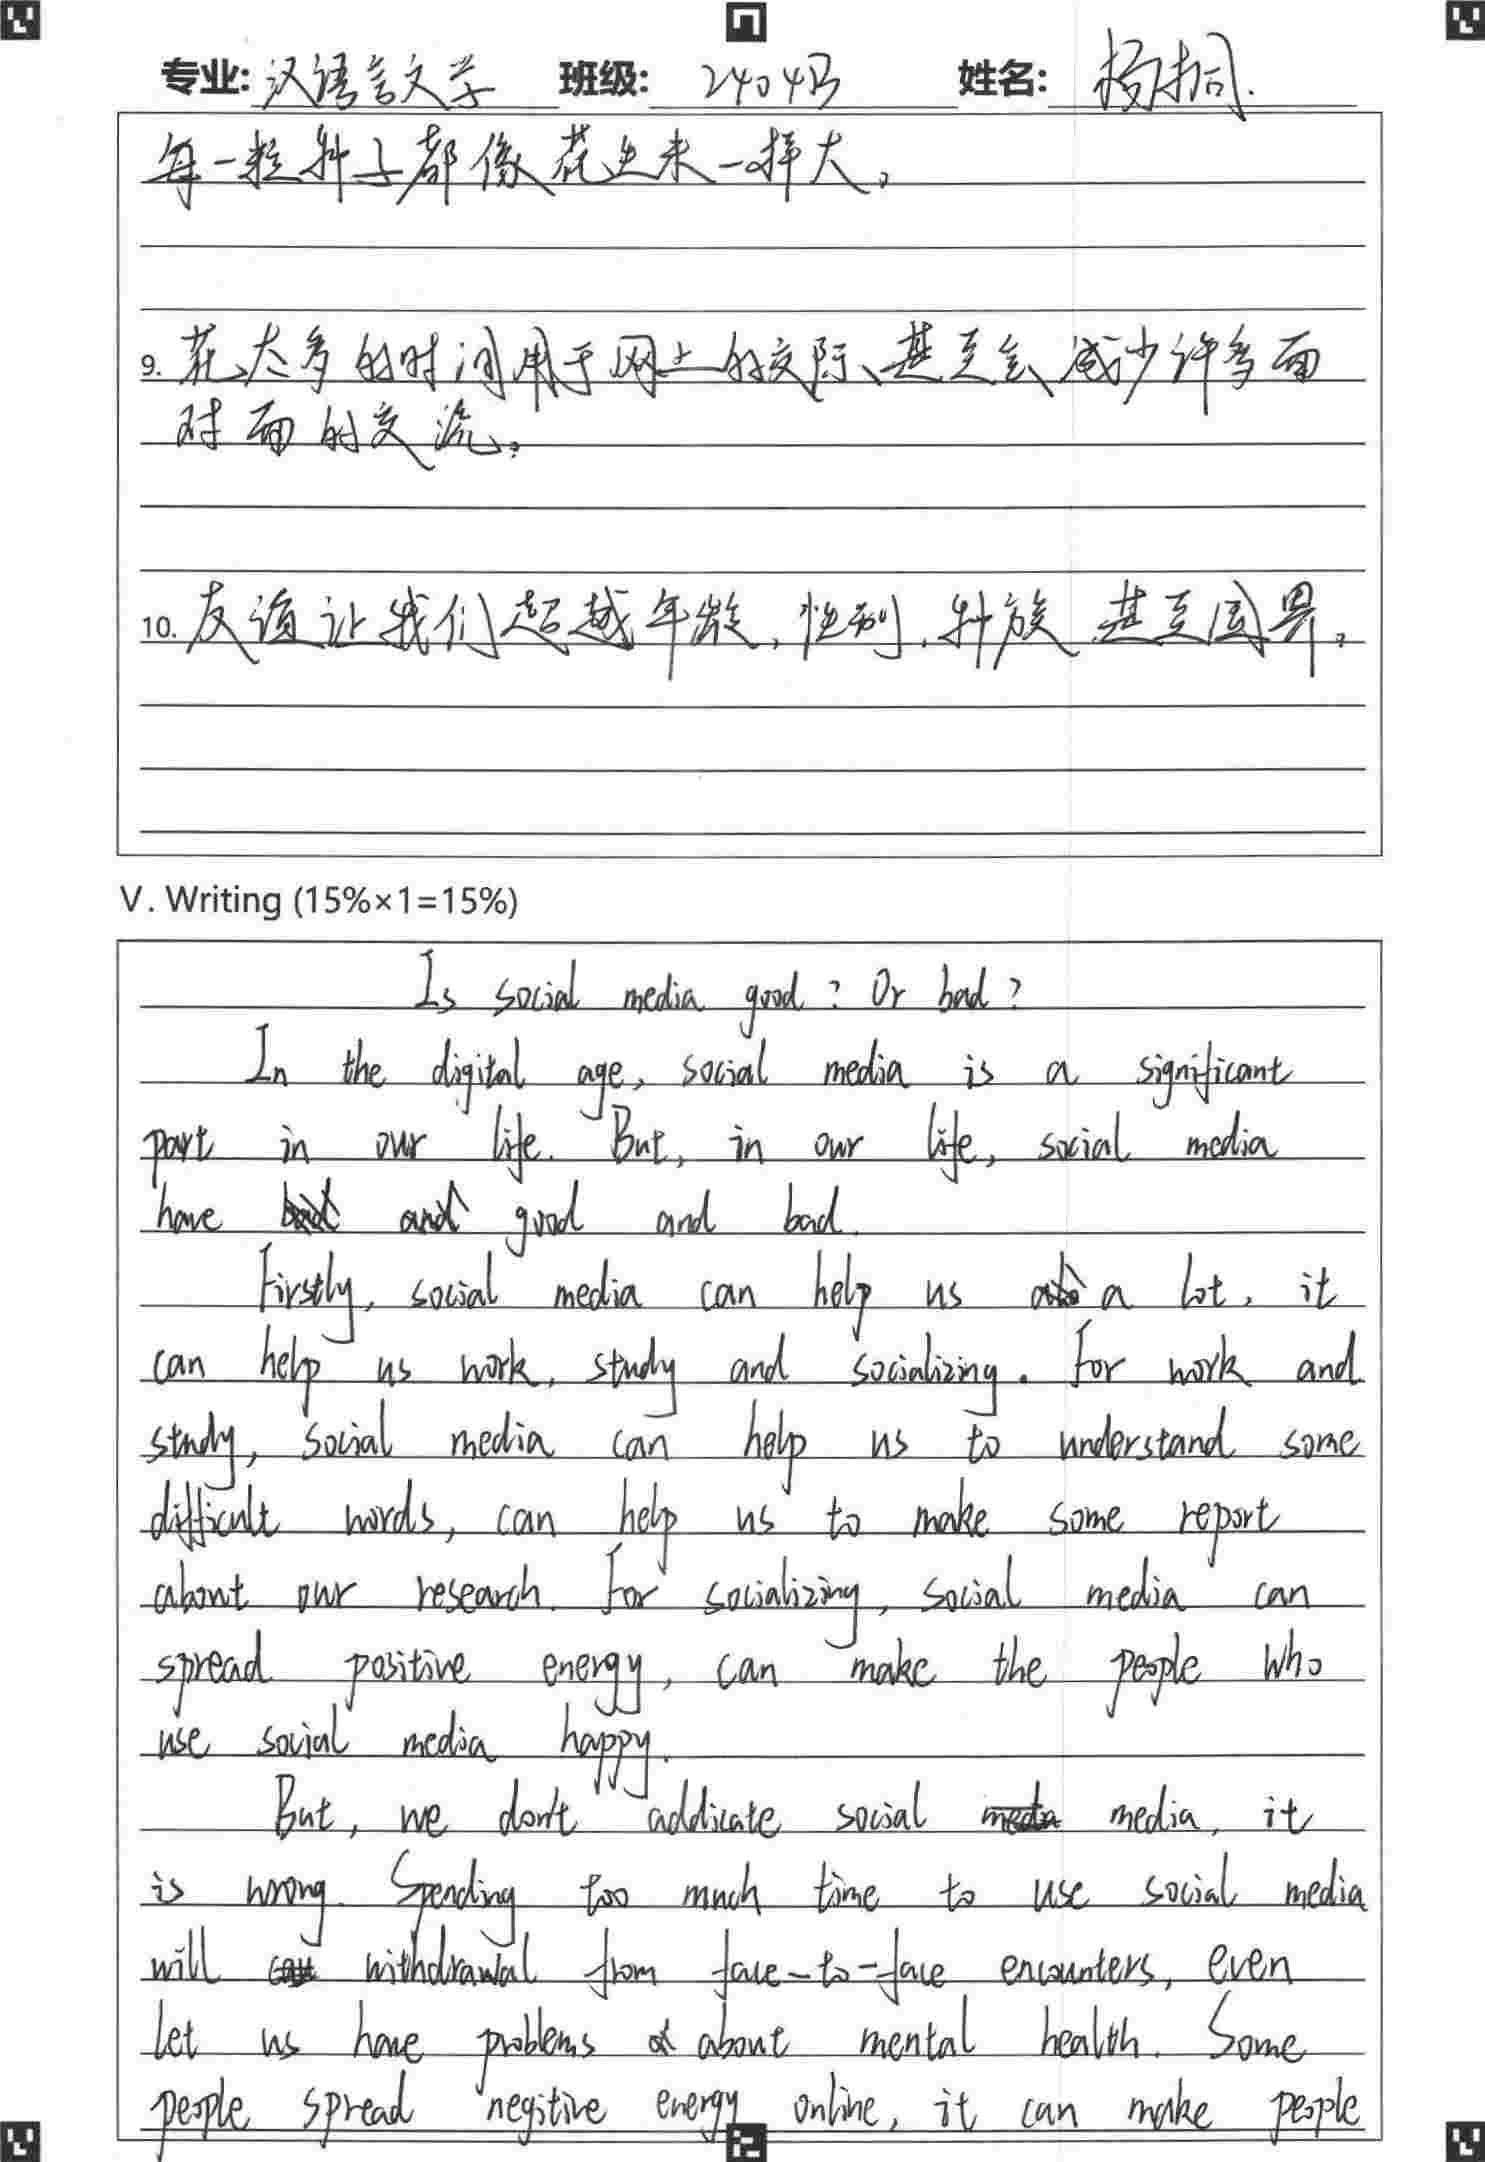 专业: 汉语言文学 班级: 2404班 姓名: 杨桐.
每一粒种子都像花生米一样大。
9. 花太多的时间用于网上的交际、甚至会减少许多面
对面的交流。
10. 友谊让我们超越年龄, 性别, 种族 甚至国界。
V. Writing (15%×1=15%)
Is social media good? Or bad?
In the digital age, social media is a significant
part in our life. But, in our life, social media
have good and bad.
Firstly, social media can help us a lot, it
can help us work, study and socializing. For work and
study, social media can help us to understand some
difficult words, can help us to make some report
about our research. For socializing, social media can
spread positive energy, can make the people who
use social media happy.
But, we don't addicate social media, it
is wrong. Spending too much time to use social media
will withdrawal from face-to-face encounters, even
let us have problems about mental health. Some
people spread negitive energy online, it can make people